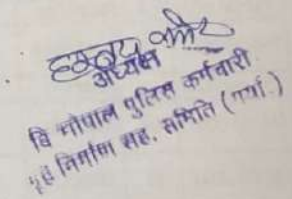 अध्यक्ष
दि भोपाल पुलिस कर्मचारी
गृह निर्माण सह. समिति (मर्या.)